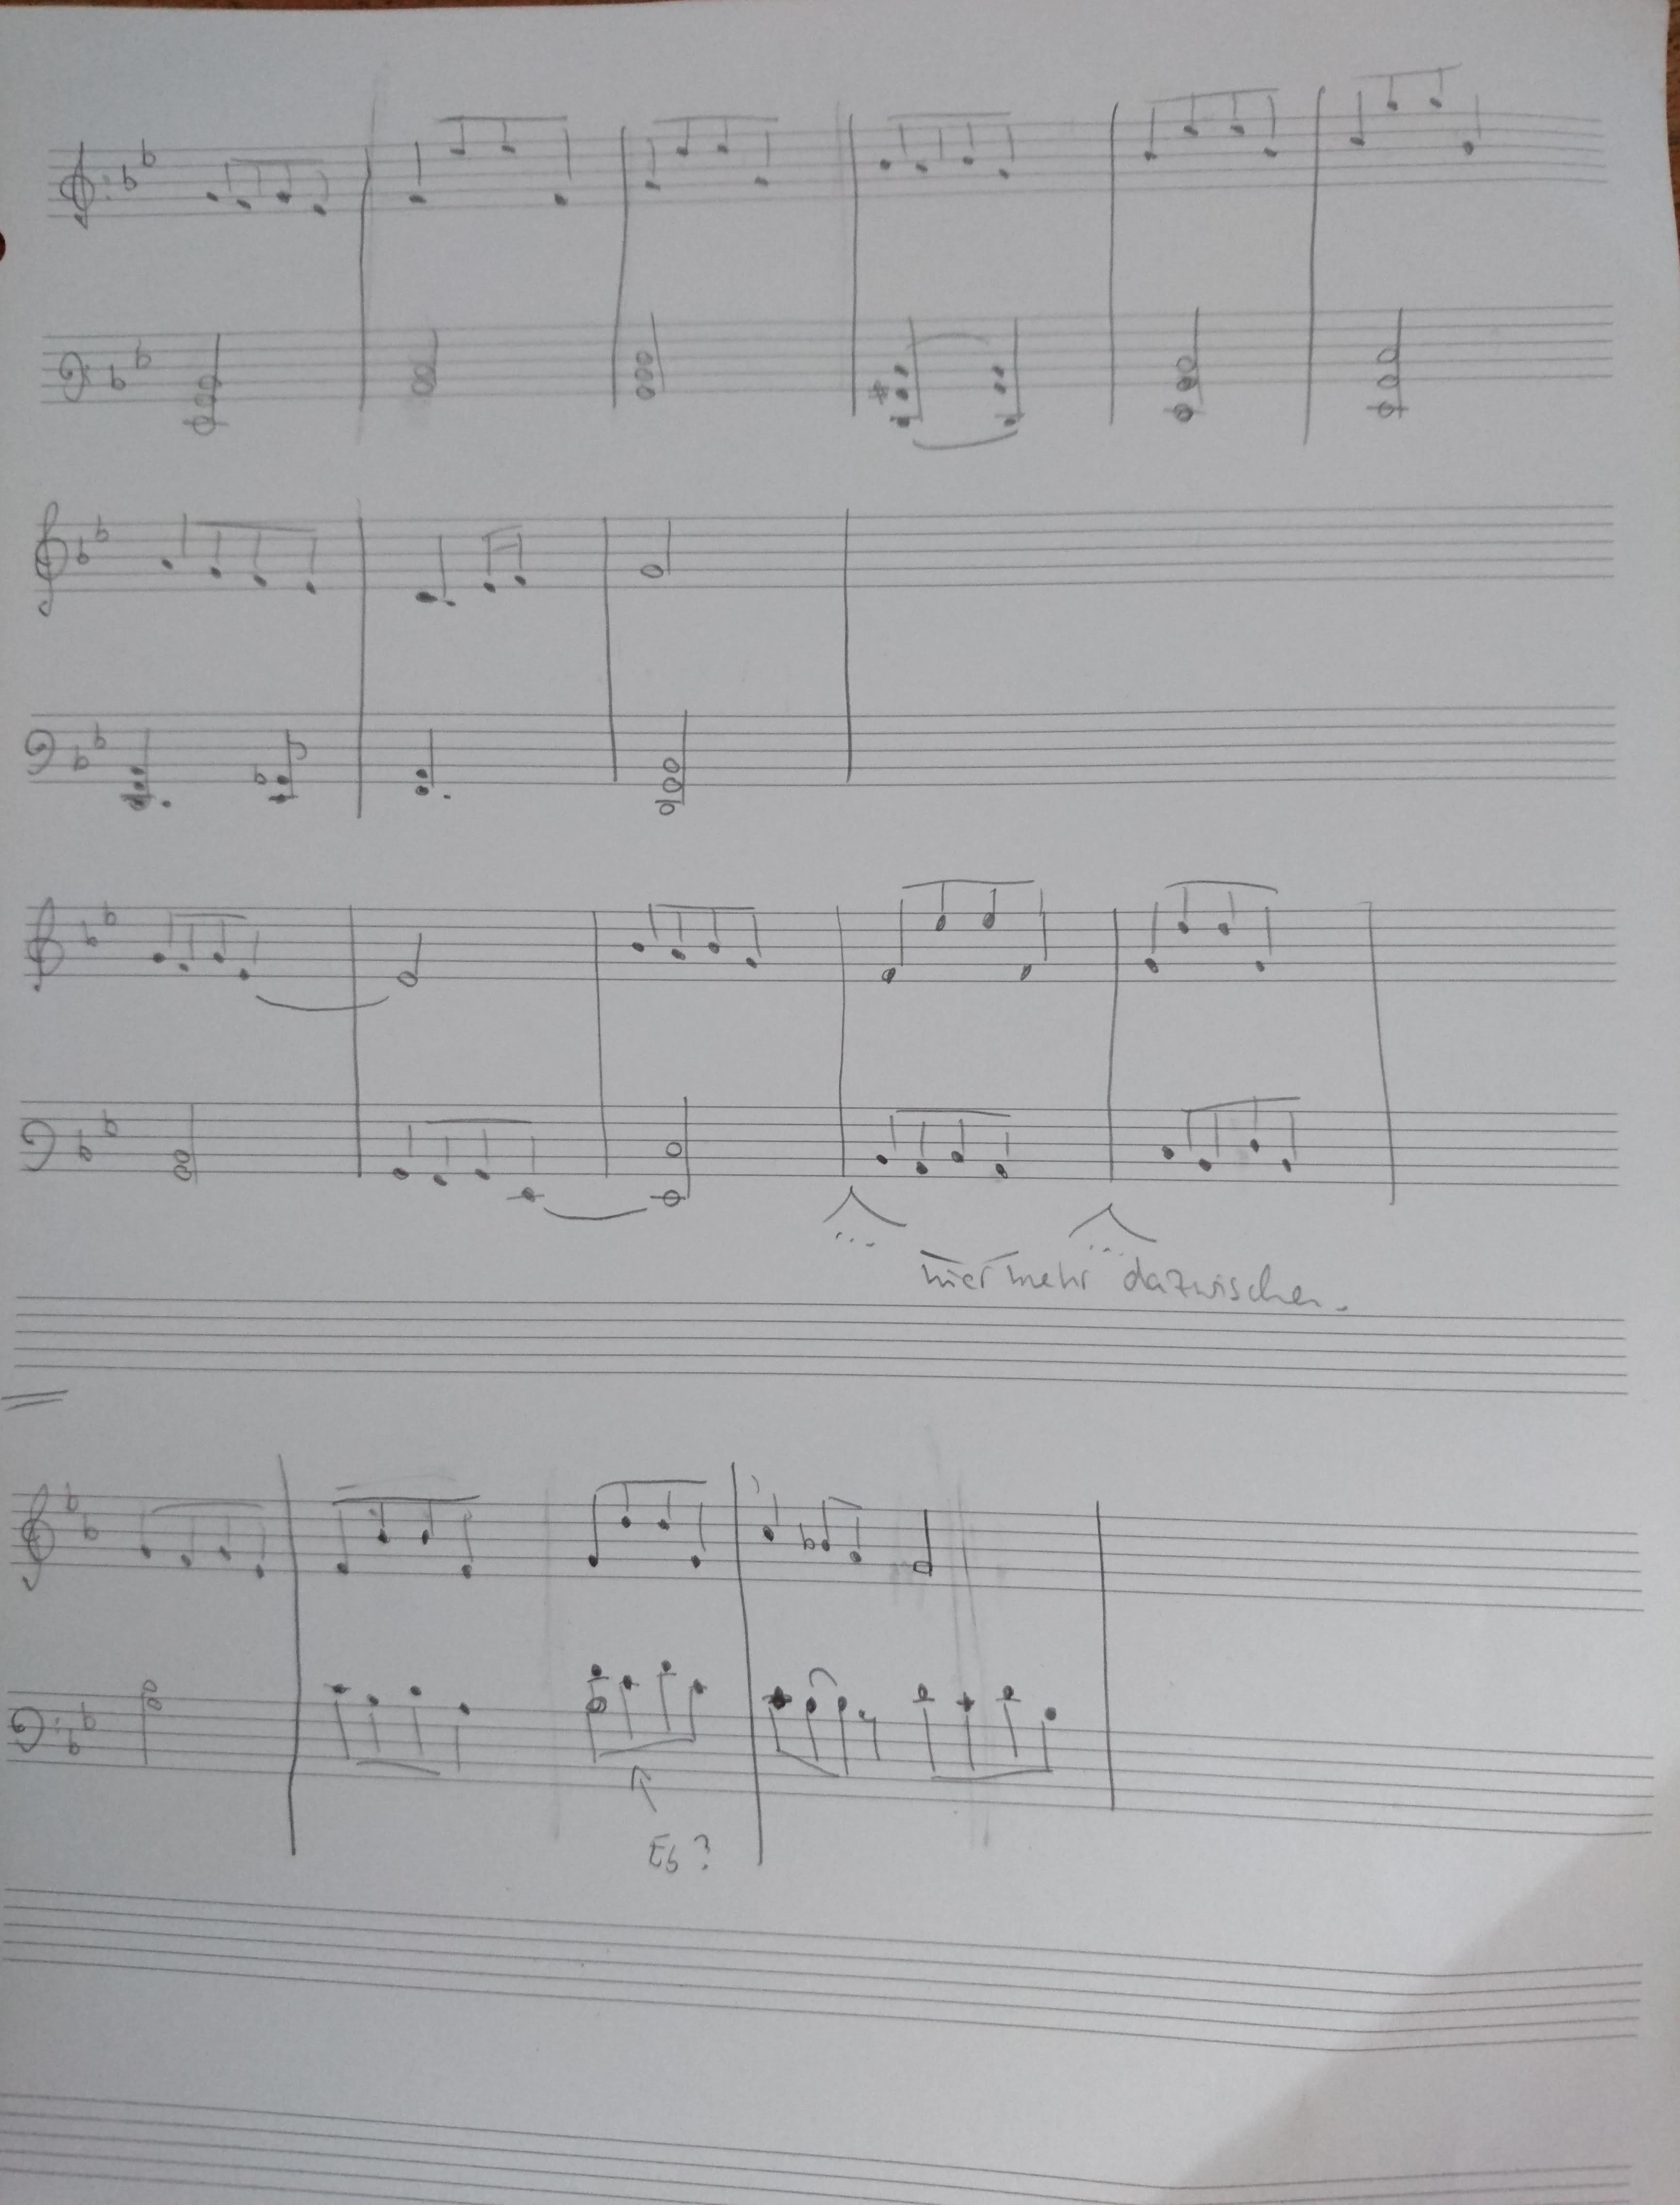 hier mehr dazwischen.
Eb?